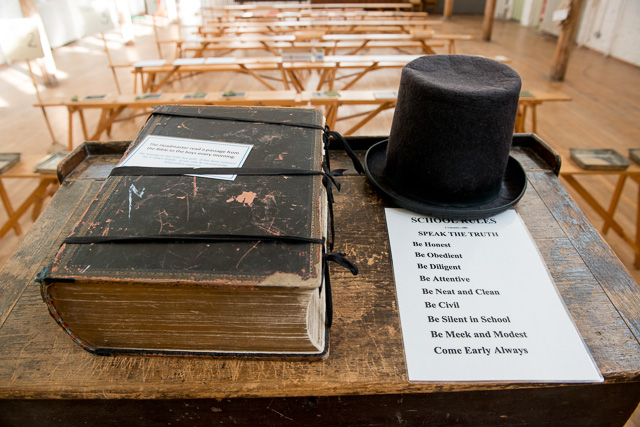 The Headmaster read a passage from
the Bible to the boys every morning.
SCHOOL RULES
SPEAK THE TRUTH
Be Honest
Be Obedient
Be Diligent
Be Attentive
Be Neat and Clean
Be Civil
Be Silent in School
Be Meek and Modest
Come Early Always